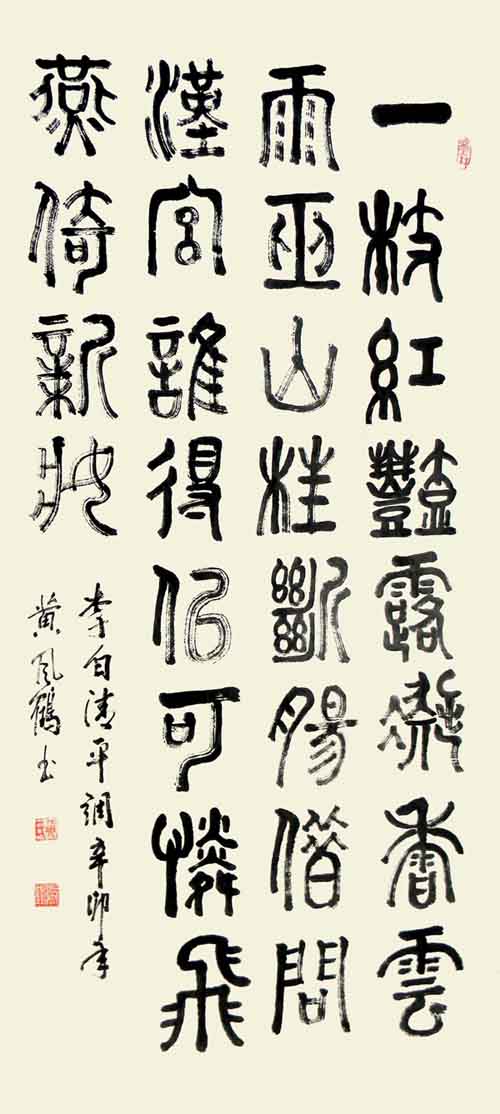 一枝紅豔露凝香雲
雨巫山枉斷腸借問
漢宮誰得似可憐飛
燕倚新妝
李白清平調辛卯年
黄凤鶴书